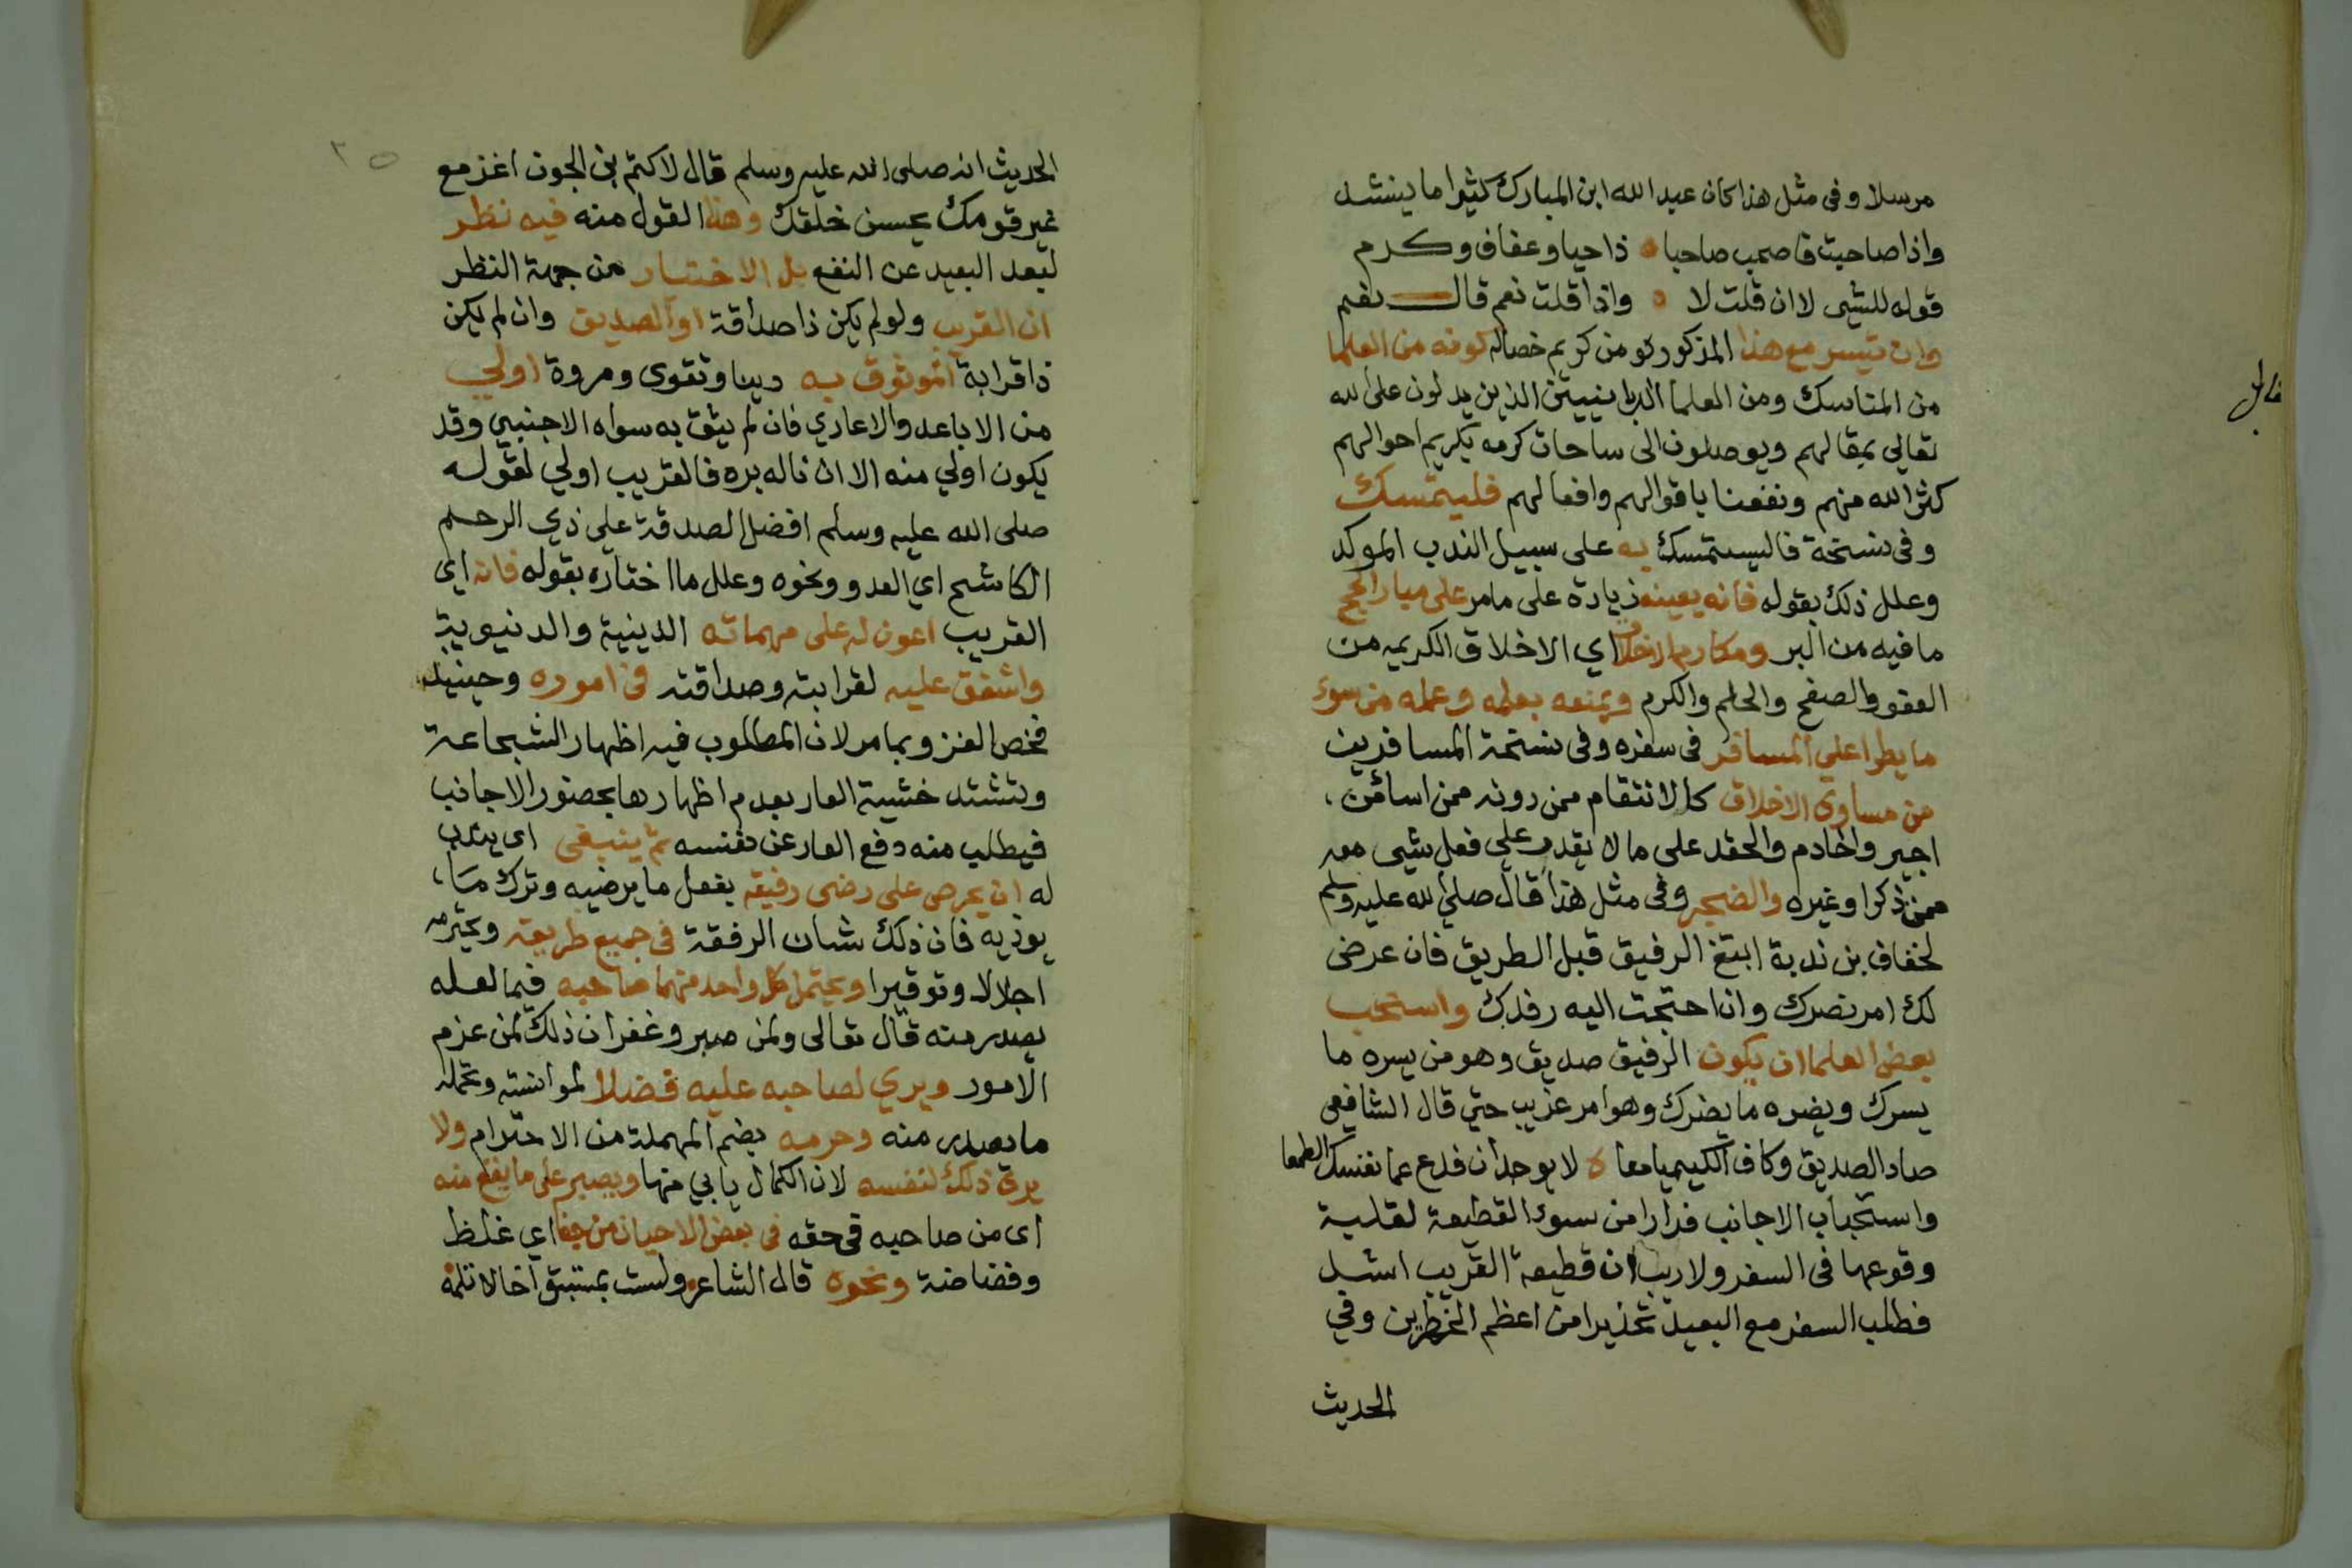 مرسلا وفى مثل هذا كان عبد الله ابن المبارك كثيرا ما ينشد
واذا صاحبت فاصحب صاحبا ذا حيا وعفاف وكرم
قوله للشى لا ان قلت لا واذا قلت نعم قال نعم
وان تيسر مع هذا المذكور من كريم خصاله كونه من العلما
من المناسك ومن العلما الربانيين الذين يدلون على الله
تعالي بمقالهم ويوصلون الى ساحات كرمه بكريم احوالهم
كثر الله منهم ونفعنا باقوالهم وافعالهم فليتمسك
وفى نسخة فاليستمسك به على سبيل الندب الموكد
وعلل ذلك بقوله فانه يعينه زيادة على مامر على مبار الحج
ما فيه من البر ومكارم الاخلاق اي الاخلاق الكريمه من
العفو والصفح والحلم والكرم ويمنعه بعلمه وعمله من سوء
ما يطرا علي المسافر فى سفره وفى نسخة المسافرين
من مساوى الاخلاق كالانتقام ممن دونه ممن اسا من
اجير وخادم والحقد على ما لا يقدر علي فعل شى معه
ممن ذكر او غيره والضجر وفى مثل هذا قال صلي الله عليه وسلم
لخفاف بن ندبة ابتغ الرفيق قبل الطريق فان عرض
لك امر نصرك وان احتجت اليه رفدك واستحب
بعض العلما ان يكون الرفيق صديق وهو من يسره ما
يسرك ويضره ما يضرك وهو امر غريب حتي قال الشافعى
صاد الصديق وكاف الكيميا معا لا يوجدان فدع عما نفسك الطمعا
واستحباب الاجانب فرارا من سوء القطيعة لغلبة
وقوعها فى السفر ولا ريب ان قطيعة القريب اشد
فطلب السفر مع البعيد تحذيرا من اعظم الخطرين وفي
الحديث
قابل
٢٥
الحديث انه صلى الله عليه وسلم قال لاكتم بن الجون اغز مع
غير قومك يحسن خلقك وهذا القول منه فيه نظر
لبعد البعيد عن النفع بل الاختيار من جهة النظر
ان القريب ولو لم يكن ذا صداقة او الصديق وان لم يكن
ذا قرابة الموثوق به دينا وتقوى ومروة اولي
من الاباعد والاعادي فان لم يثق به سواه الاجنبي وقد
يكون اولي منه الا ان ناله بره فالقريب اولي لقوله
صلى الله عليه وسلم افضل الصدقة على ذي الرحم
الكاشح اي العدو ونحوه وعلل ما اختاره بقوله فانه اى
القريب اعون له على مهماته الدينية والدنيوية
واشفق عليه لقرابته وصداقته فى اموره وحينيذ
فخص الغزو بما مر لان المطلوب فيه اظهار الشجاعة
وتشتد خشية العار بعدم اظهارها بحضور الاجانب
فيطلب منه دفع العار عن نفسه ثم ينبغى اى يندب
له ان يحرص على رضى رفيقه بفعل ما يرضيه وترك ما
يوذيه فان ذلك شان الرفقة فى جميع طريقه ويحترمه
اجلالا وتوقيرا ويحتمل كل واحد منهما صاحبه فيما لعله
يصدر منه قال تعالى ولمن صبر وغفر ان ذلك لمن عزم
الامور ويري لصاحبه عليه فضلا لموانسته وتحمله
ما يصدر منه وحرمه بضم المهملة من الاحترام ولا
يرى ذلك لنفسه لان الكمال يابي منها ويصبر على ما يقع منه
اى من صاحبه فى حقه فى بعض الاحيان من جفا اي غلظ
وفضاضة ونحوه قال الشاعر ولست بمستبق اخا لا تلمه